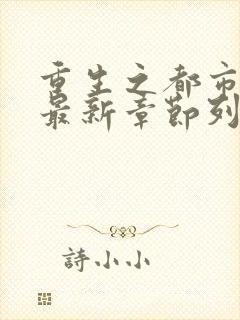 重生之都市
最新章節列
詩小小